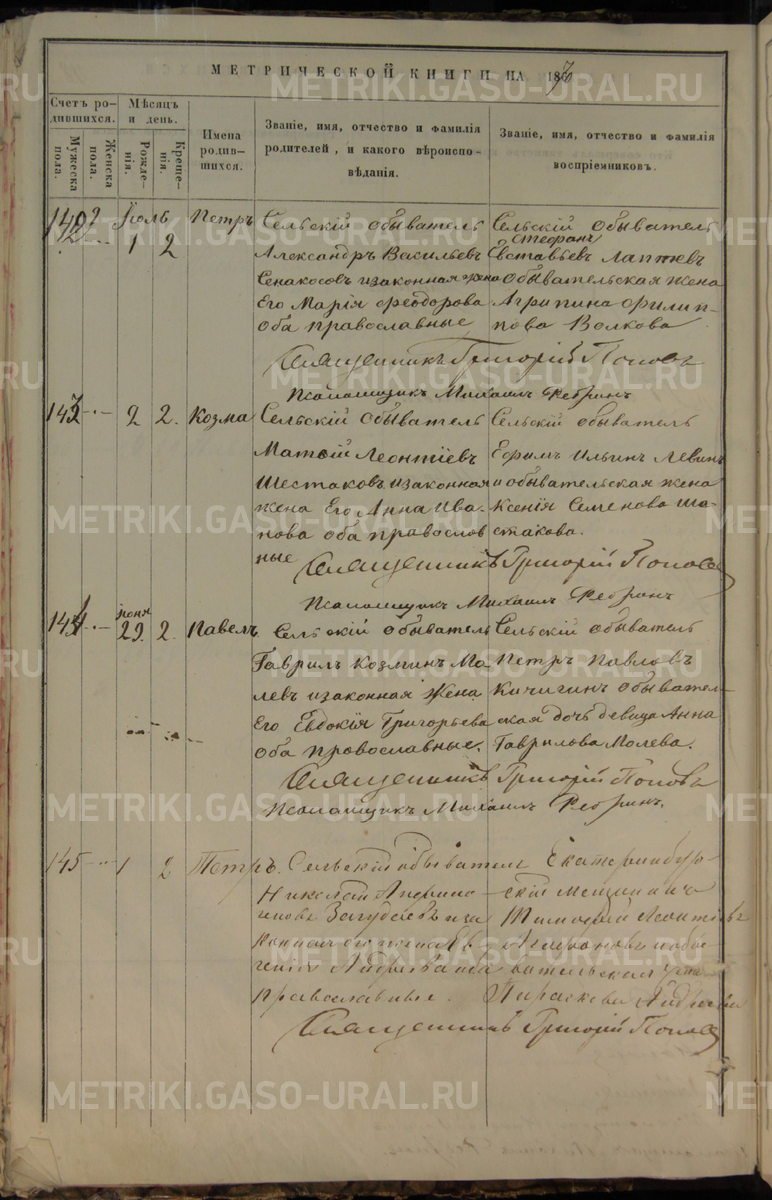 МЕТРИЧЕСКОЙ КНИГИ НА 1867
Счетъ родившихся.
Мѣсяцъ и день.
Имена родившихся.
Званіе, имя, отчество и фамилія родителей, и какого вѣроисповѣданія.
Званіе, имя, отчество и фамилія воспріемниковъ.
Мужеска пола.
Женска пола.
Рожденія.
Крещенія.
142 Іюль 1 2 Петръ
Сельскій обыватель
Александръ Васильевъ
Сенакосовъ и законная жена
Его Марія Феодорова
оба православные
Сельскій обыватель
Стефанъ
Евставьевъ Лаптевъ
обывательская жена
Агрипина Филип-
пова Волкова
Священникъ Григорій Поповъ
Псаломщикъ Михаилъ Ребринъ
143 2 2. Козма
Сельскій обыватель
Матвій Леонтіевъ
Шестаковъ и законная
жена Его Анна Ива-
нова оба православ
ные
Сельскій обыватель
Ефимъ Ильинъ Левинъ
и обывательская жена
Ксенія Семенова Ше-
стакова.
Священникъ Григорій Поповъ
Псаломщикъ Михаилъ Ребринъ
144 Іюня 29. 2. Павелъ
Сельскій обыватель
Гаврилъ Козминъ Мо
левъ и законная жена
Его Евдокія Григорьева
оба православные.
Сельскій обыватель
Петръ Павловъ
Кичигинъ обыватель-
ская дочь девица Анна
Гаврилова Молева.
Священникъ Григорій Поповъ
Псаломщикъ Михаилъ Ребринъ.
145 1 2 Петръ.
Сельскій обыватель
Николай
и за
Андреева оба
православные.
Екатеринбур-
скій мещанинъ
Тимофей Леонтіевъ
и обы-
вательская
Параскева
Священникъ Григорій Поповъ
METRIKI.GASO-URAL.RU